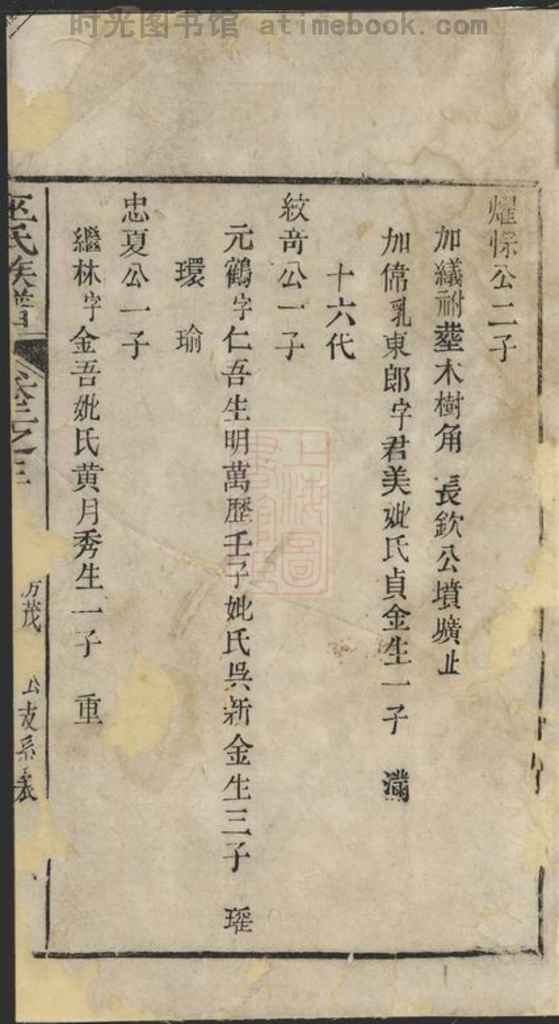 时光图书馆 atimebook.com
燿悰公二子
加纎祔塟木樹角 長欽公墳壙止
加儋乳東郎字君美妣氏貞金生一子 满
十六代
紋奇公一子
元鶴字仁吾生明萬歷壬子妣氏吳新金生三子 瑶
環 瑜
忠夏公一子
繼林字金吾妣氏黄月秀生一子 重
氏族譜 卷三之三 万茂 公支系表